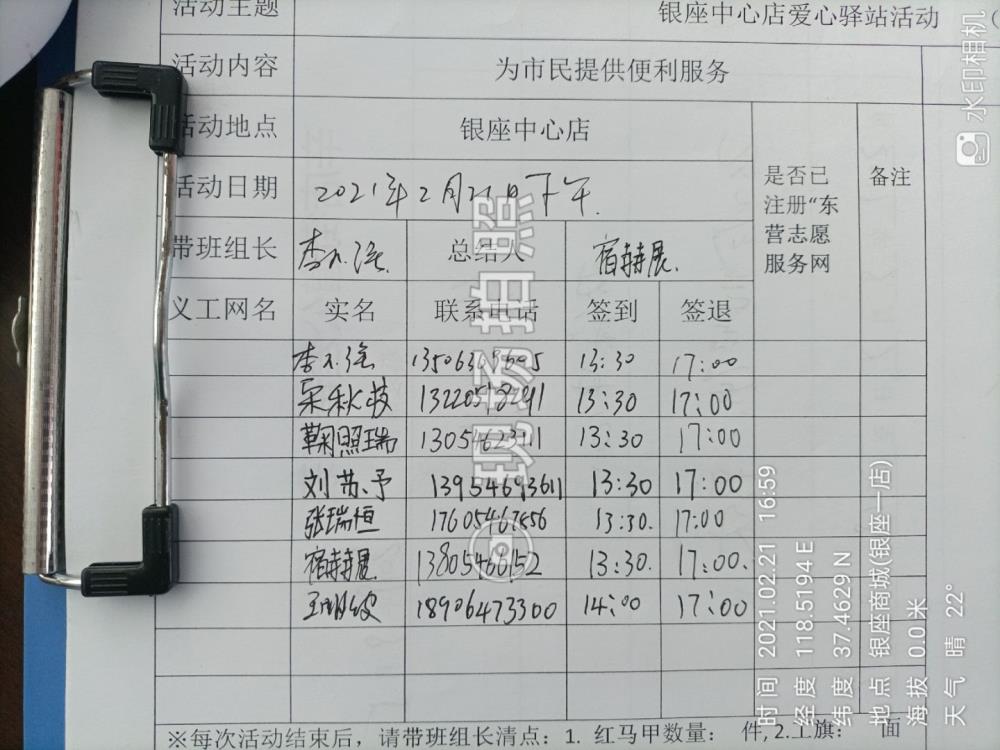 活动主题 银座中心店爱心驿站活动
活动内容 为市民提供便利服务
活动地点 银座中心店
活动日期 2021年2月21日下午.
是否已注册“东营志愿服务网
备注
带班组长 总结人 宿赫展.
义工网名 实名 联系电话 签到 签退
13:30 17:00
13:30 17:00
鞠照瑞 13:30 17:00
刘苏予 13954693611 13:30 17:00
张瑞恒 13:30. 17:00
宿赫展 13805460152 13:30. 17:00.
18906473300 14:00 17:00
※每次活动结束后，请带班组长清点：1. 红马甲数量： 件, 2.工旗： 面
现场拍照
水印相机
时间 2021.02.21 16:59
经度 118.5194 E
纬度 37.4629 N
地点 银座商城(银座一店)
海拔 0.0 米
天气 晴 22°